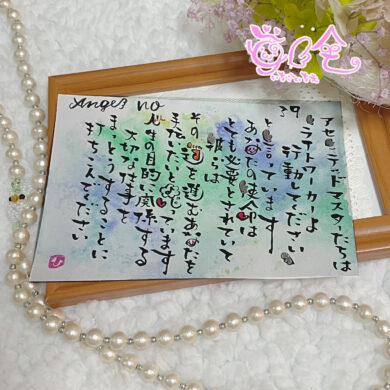 Angel no
39
アセンテッドマスターたちは
ライトワーカーよ
行動してください
と言っています
あなたの使命は
とても必要とされていて
彼らは
その道を進むあなたを
手伝いたいと感じています
人生の目的に関係する
大切な仕事を
まっとうすることに
打ちこんでください